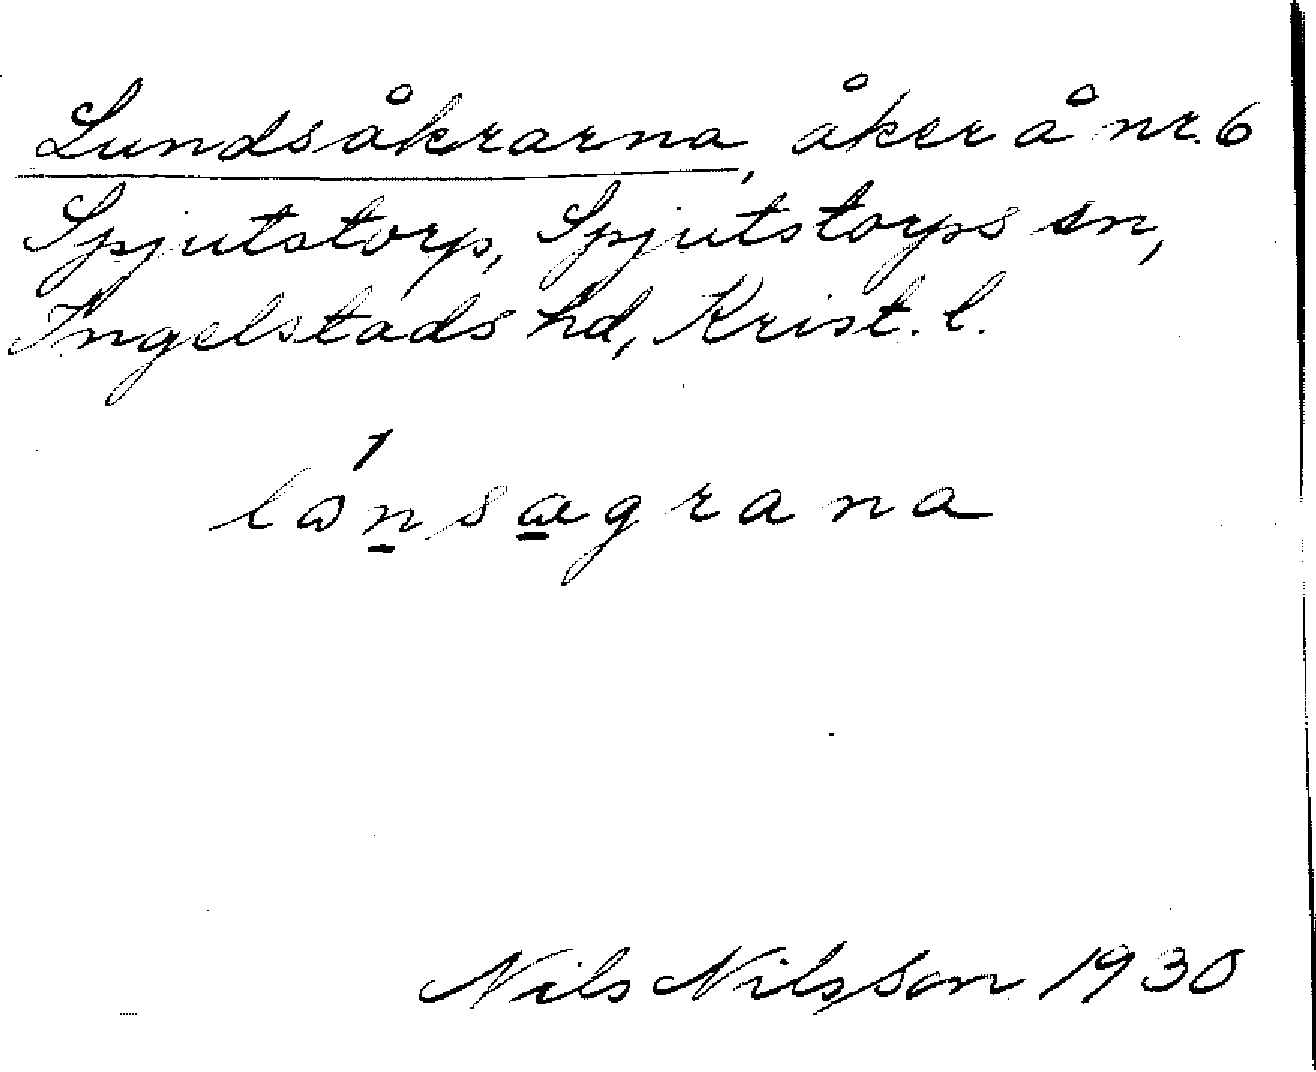 Lundsåkrarna, åker å nr. 6
Spjutstorp, Spjutstorps sn,
Ingelstads hd, Krist. l.
Nils Nilsson 1930